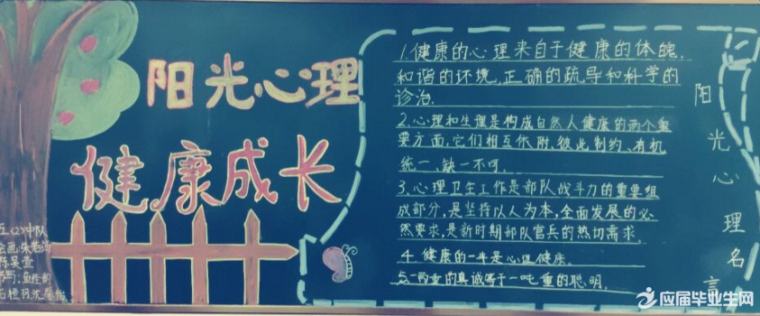 阳光心理
健康成长
五.(2)中队
1.健康的心理来自于健康的体魄,
和谐的环境,正确的疏导和科学的
诊治.
2.心理和生理是构成自然人健康的两个重
要方面,它们相互依附,彼此制约、有机
统一、缺一不可.
3.心理卫生工作是部队战斗力的重要组
成部分,是坚持以人为本,全面发展的必
然要求,是新时期部队官兵的热切需求.
4.健康的一半是心理健康.
5.一两重的真诚等于一吨重的聪明.
阳光心理名言
应届毕业生网